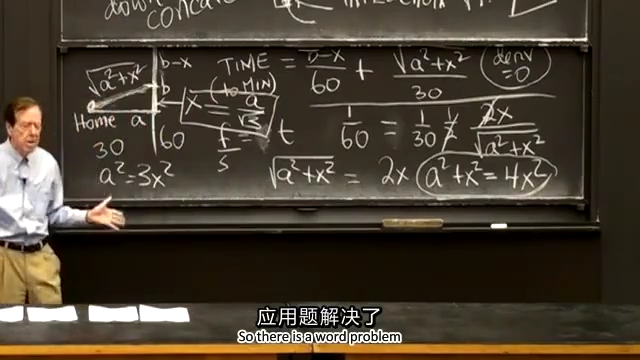 down
concave
√a²+x²
b-x
b
Home a
30
60
a²=3x²
x = a/√3
TIME = b-x/60 + √a²+x²/30
(to MIN)
deriv =0
1/60 = 1/30 1/2 2x/√a²+x²
√a²+x² = 2x
a²+x²=4x²
应用题解决了
So there is a word problem